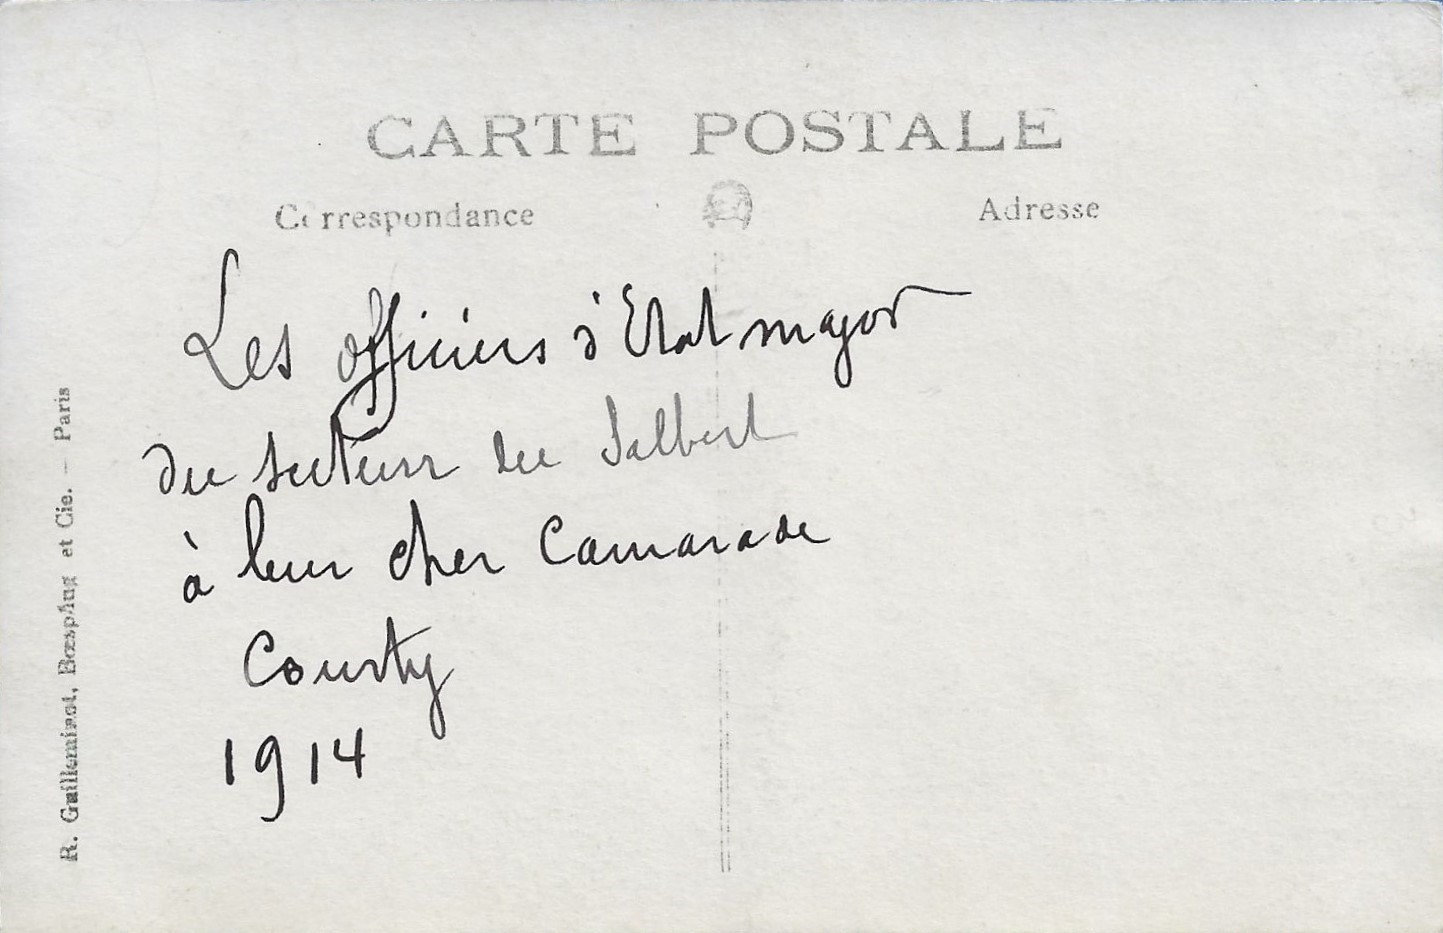 CARTE POSTALE
Correspondance
Adresse
Les officiers d'Etat major
du secteur du Salbert
à leur cher Camarade
Courty
1914
R. Guilleminot, Bœspflug et Cie. — Paris